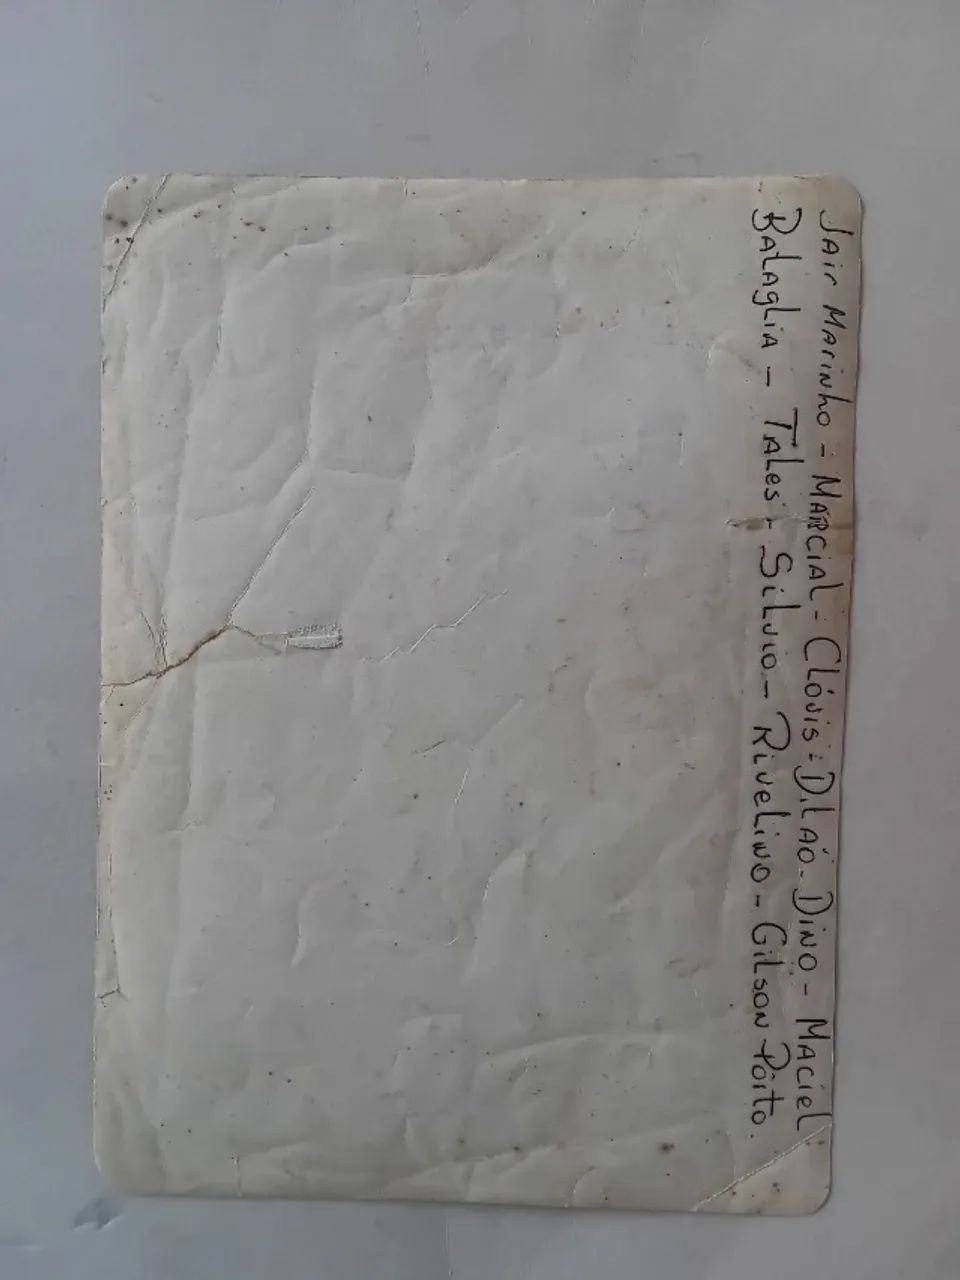 Jair Marinho - Marcial - Clóvis - Dilaó - Dino - Maciel
Bataglia - Tales - Silvio - Rivelino - Gilson Pôrto.